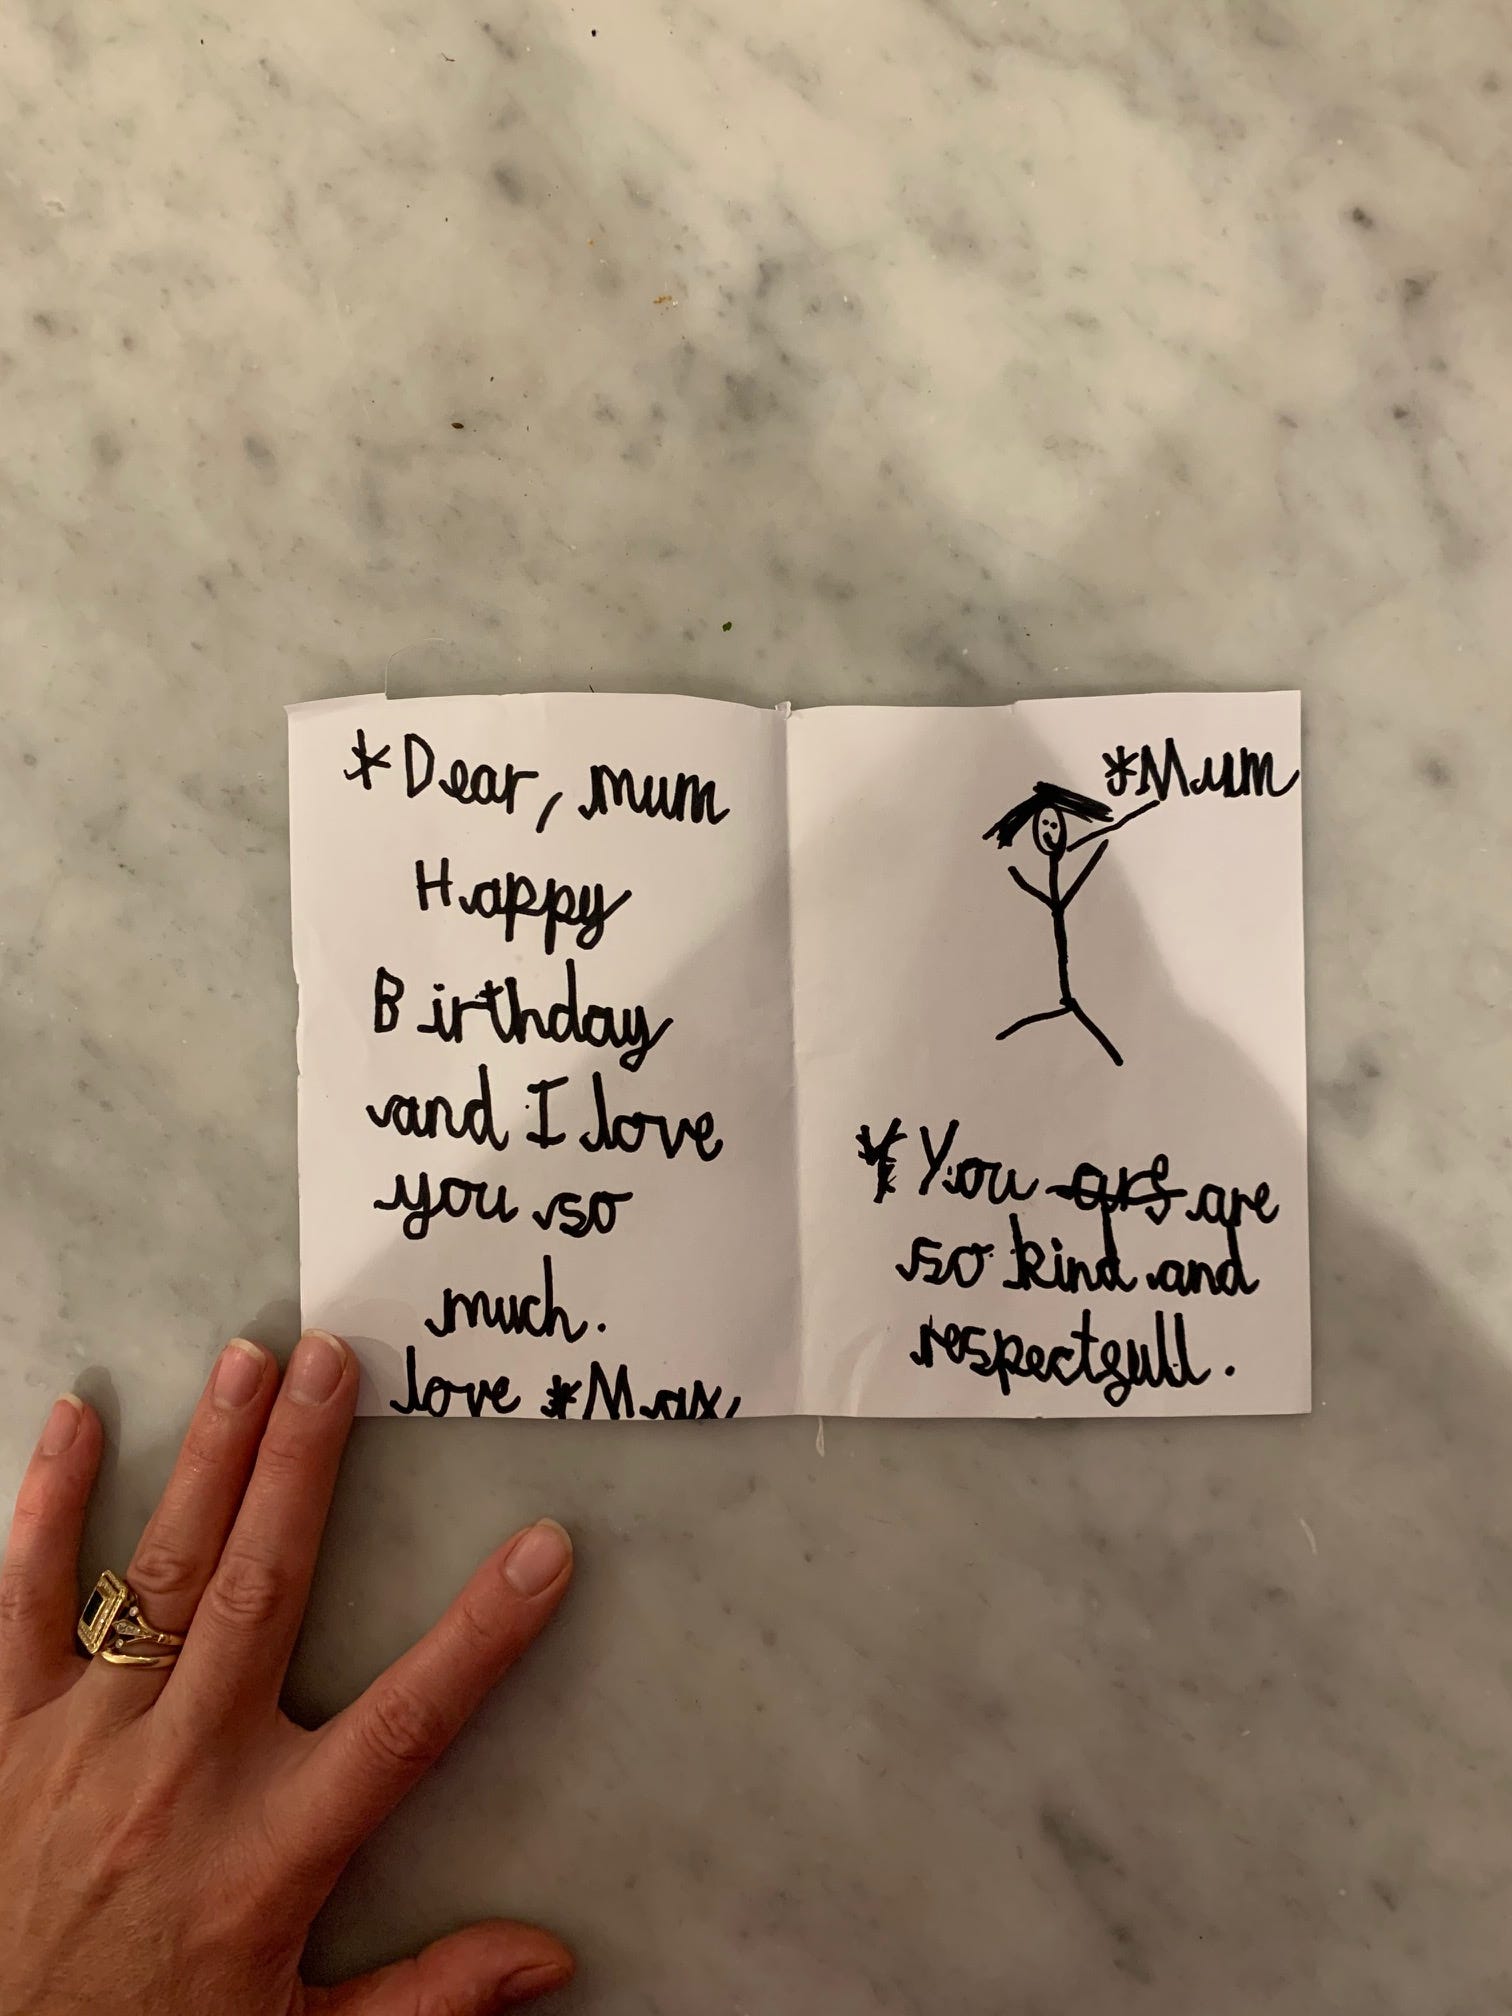 *Dear, mum
Happy
Birthday
and I love
you so
much.
love *Max,
*Mum
*You ars are
so kind and
respectfull.